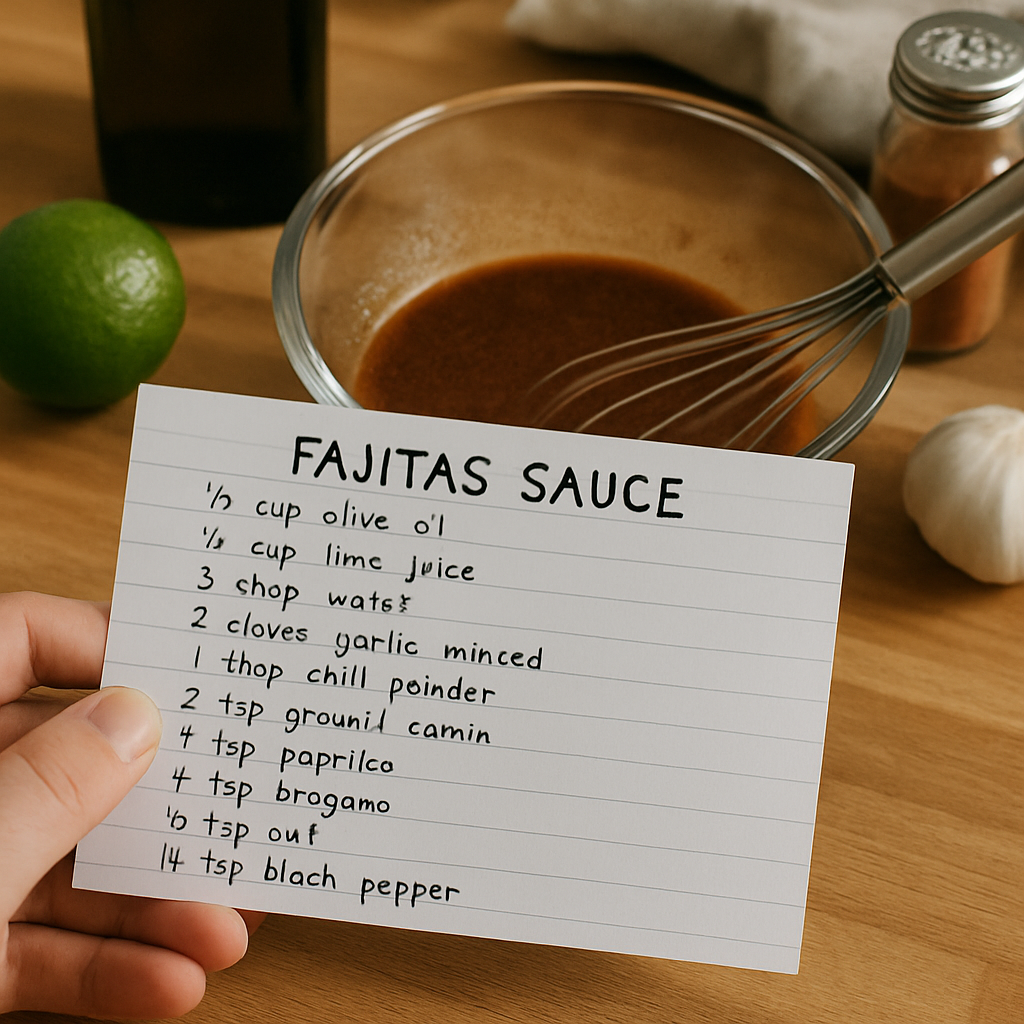 FAJITAS SAUCE
cup olive o'l
cup lime juice
3 shop
2 cloves garlic minced
1 thop chill poinder
2 tsp ground camin
4 tsp paprilco
4 tsp brogamo
tsp
14 tsp blach pepper